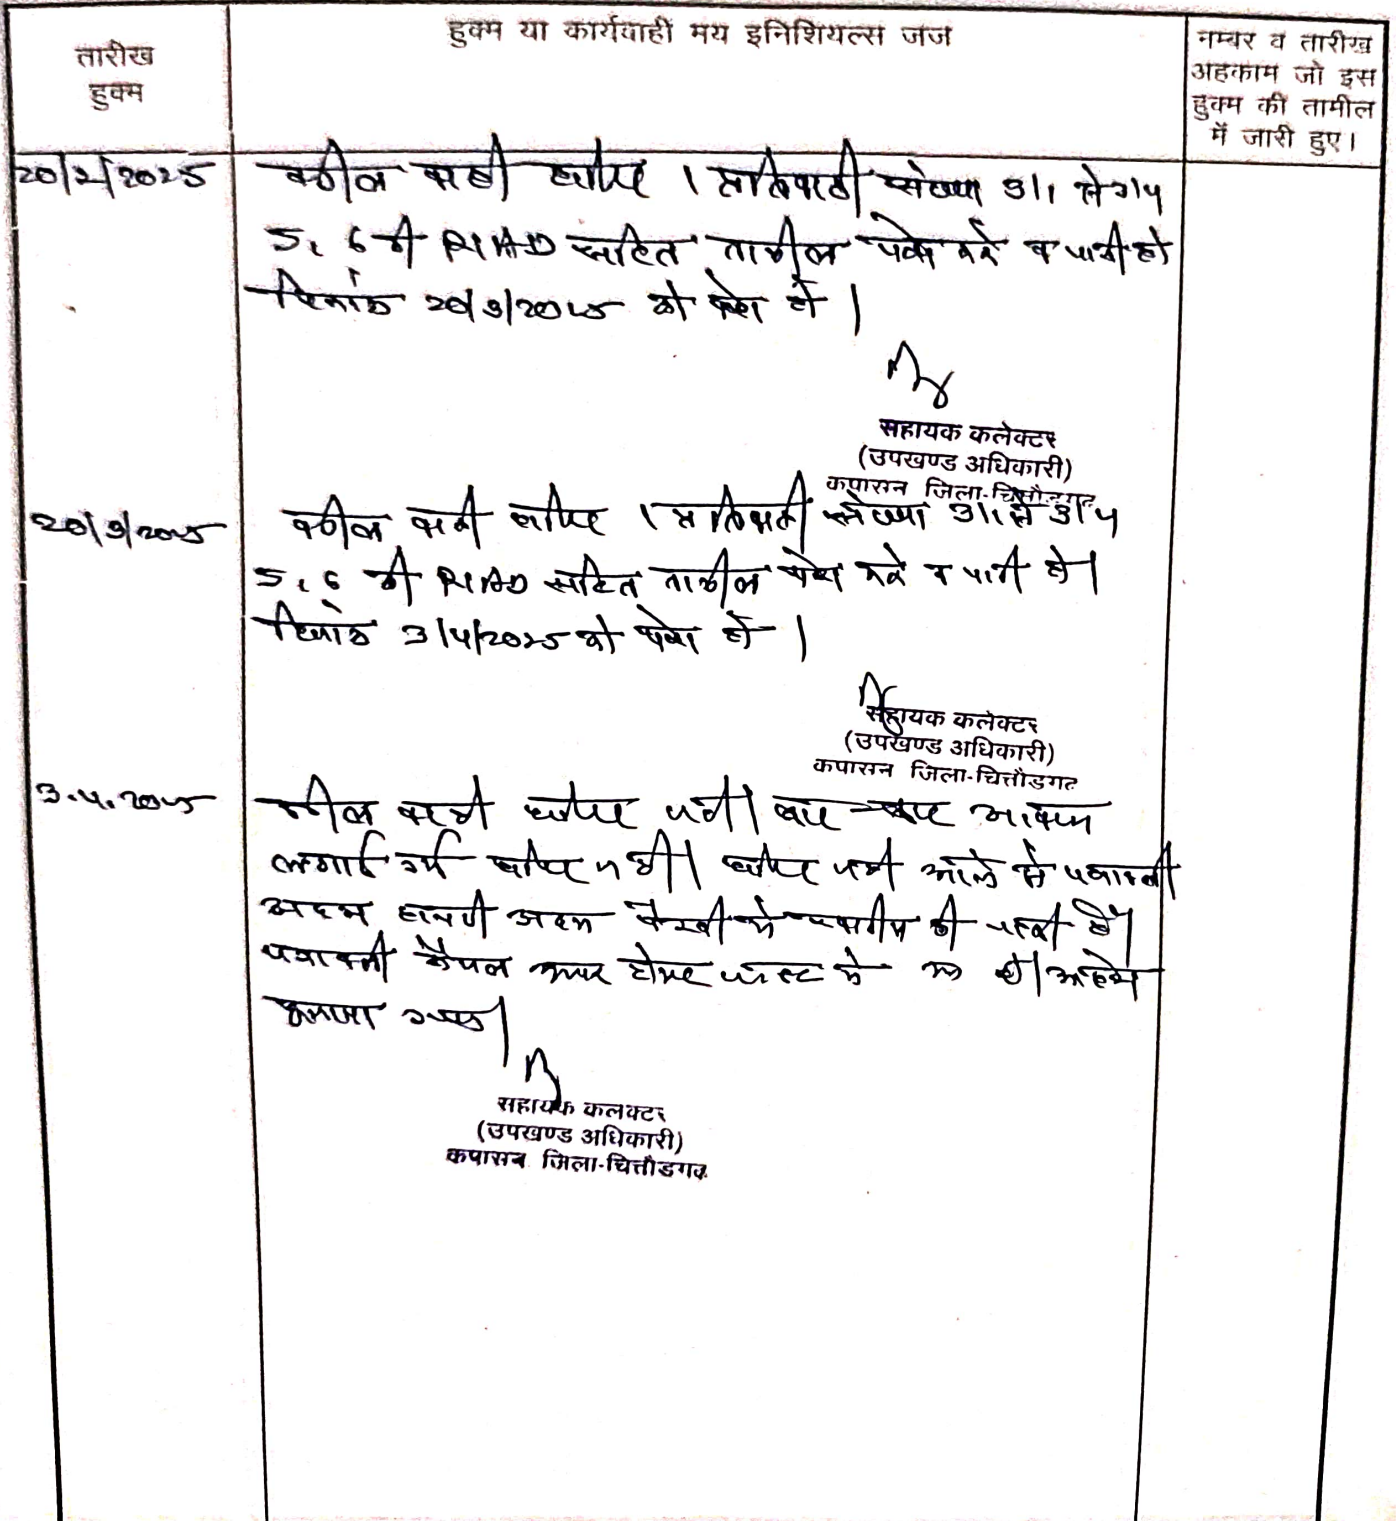 तारीख
हुक्म
हुक्म या कार्यवाही मय इनिशियल्स जज
नम्बर व तारीख
अहकाम जो इस
हुक्म की तामील
में जारी हुए।
20/2/2025
वकील वादी हाजिर । प्रतिवादी संख्या 3/1 से 3/4
5, 6 की RIAD सहित तामील पेश करे व जारी हो
दिनांक 20/3/2025 को पेश हो |
सहायक कलेक्टर
(उपखण्ड अधिकारी)
कपासन जिला-चित्तौडगढ
20/3/2025
वकील वादी हाजिर । प्रतिवादी संख्या 3/1 से 3/4
5, 6 की RIAD सहित तामील पेश करे व जारी हो |
दिनांक 3/4/2025 को पेश हो |
सहायक कलेक्टर
(उपखण्ड अधिकारी)
कपासन जिला-चित्तौडगढ
3.4.2025
वकील वादी हाजिर नहीं। बार-बार आवाज
लगाई गई हाजिर नहीं। हाजिर नहीं आने से पत्रावली
अदम हाजरी अदम पैरवी में खारीज की जाती है।
पत्रावली फैसल शुमार होकर नम्बर से कम हो। आदेश
सुनाया गया।
सहायक कलक्टर
(उपखण्ड अधिकारी)
कपासन जिला-चित्तौडगढ